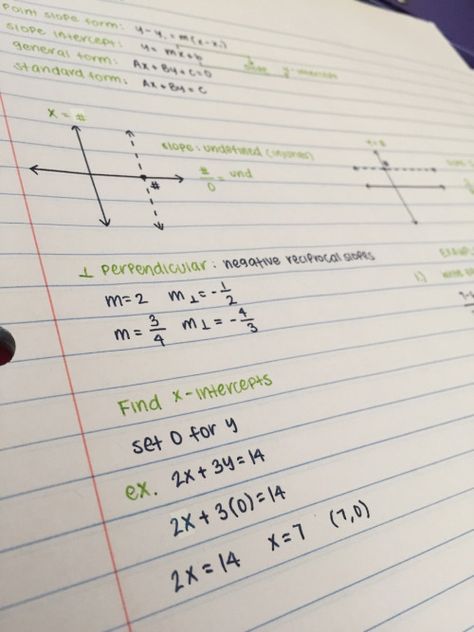 Point slope form: y-y₁=m(x-x₁)
slope intercept: y=mx+b
slope y-intercept
general form: Ax+By+C=0
standard form: Ax+By=C
x=#
slope: undefined
#/0 = und
#
⊥ perpendicular: negative reciprocal slopes
m=2 m⊥=-1/2
m=3/4 m⊥=-4/3
1.)
Find x-intercepts
set 0 for y
ex. 2x+3y=14
2x+3(0)=14
2x=14 x=7 (7,0)